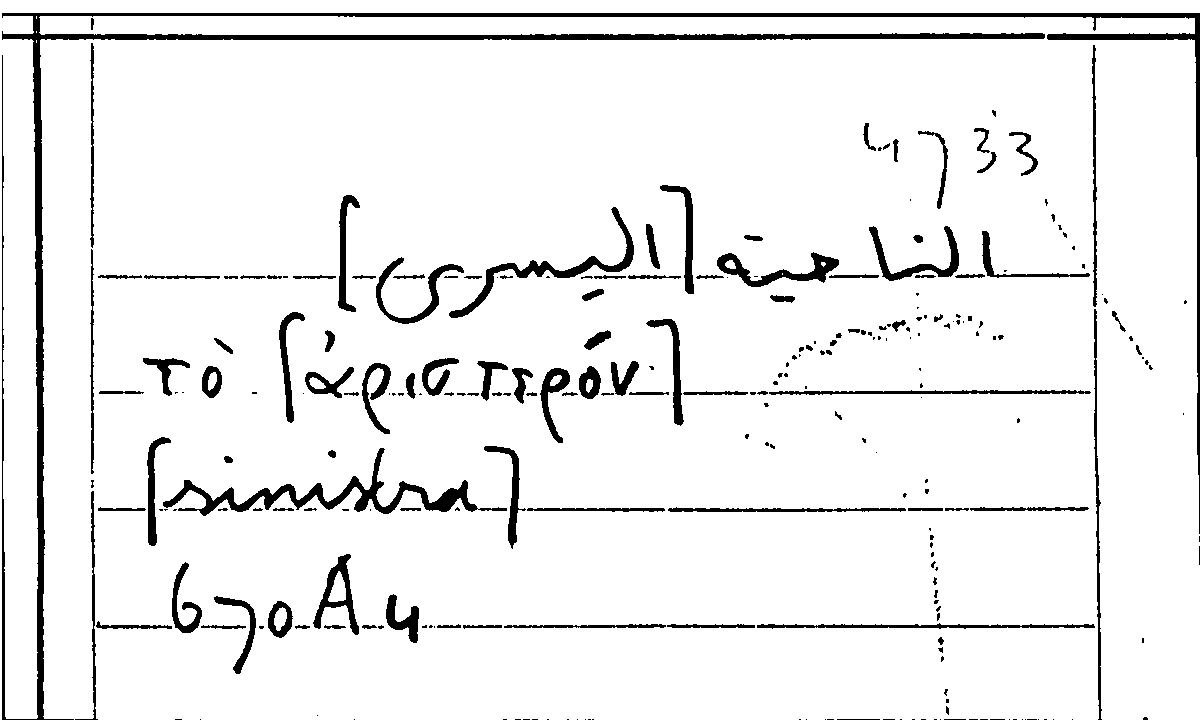 4733
الناحية [اليسرى]
τὸ [ἀριστερόν]
[sinistra]
670 A 4